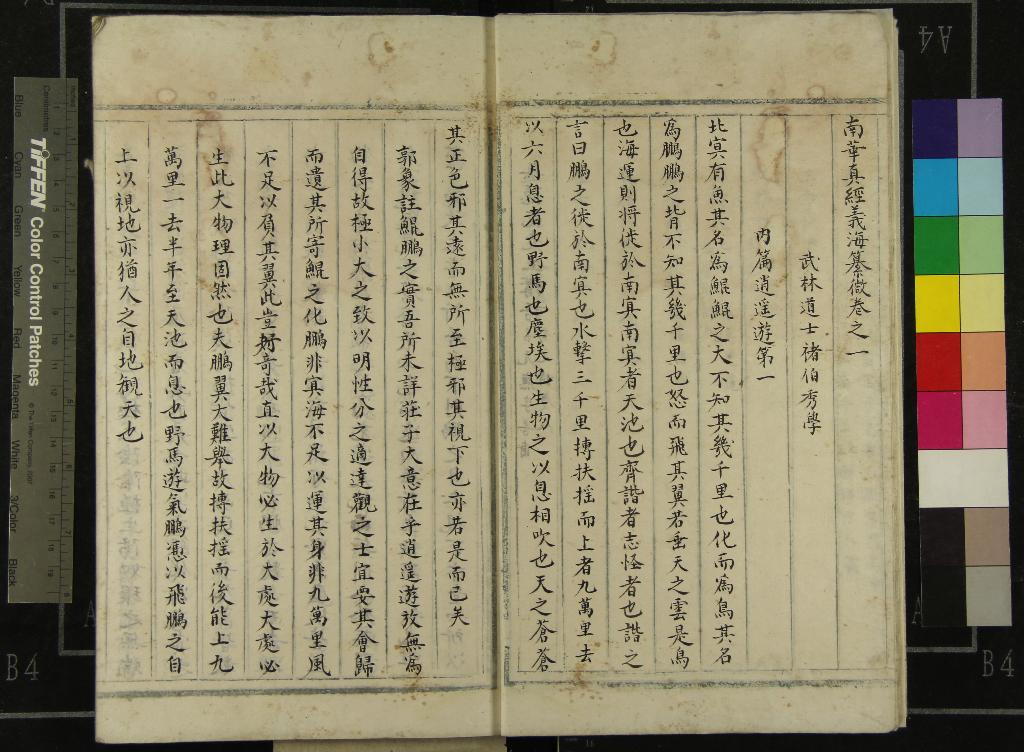 南華真經義海纂微卷之一
武林道士褚伯秀學
內篇逍遙遊第一
北㝠有魚其名為鯤鯤之大不知其幾千里也化而為鳥其名
為鵬鵬之背不知其幾千里也怒而飛其翼若垂天之雲是鳥
也海運則將徙於南㝠南㝠者天池也齊諧者志怪者也諧之
言曰鵬之徙於南㝠也水擊三千里摶扶揺而上者九萬里去
以六月息者也野馬也塵埃也生物之以息相吹也天之蒼蒼
其正色邪其遠而無所至極邪其視下也亦若是而已矣
郭象註鯤鵬之實吾所未詳莊子大意在乎逍遥遊放無為
自得故極小大之致以明性分之適達觀之士宜要其會歸
而遺其所寄鯤之化鵬非㝠海不足以運其身非九萬里風
不足以負其翼此豈好奇哉直以大物必生於大處大處必
生此大物理固然也夫鵬翼大難舉故摶扶揺而後能上九
萬里一去半年至天池而息也野馬遊氣鵬憑以飛鵬之自
上以視地亦猶人之自地觀天也
TIFFEN Color Control Patches
© The Tiffen Company, 2007
Centimetres
Inches
Blue
Cyan
Green
Yellow
Red
Magenta
White
3/Color
Black
A4
B4
B4